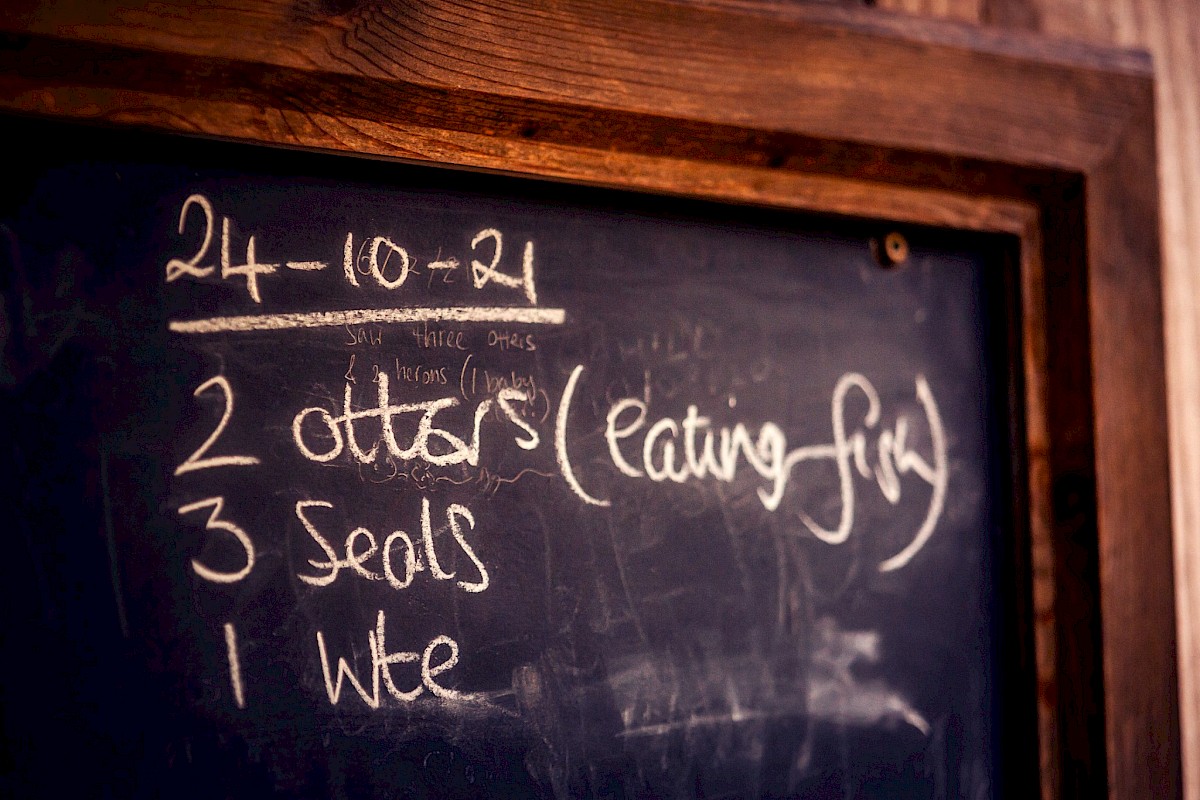 24-10-21
Saw three otters
& 2 herons (1 baby)
2 otters (eating fish)
3 Seals
1 Wte